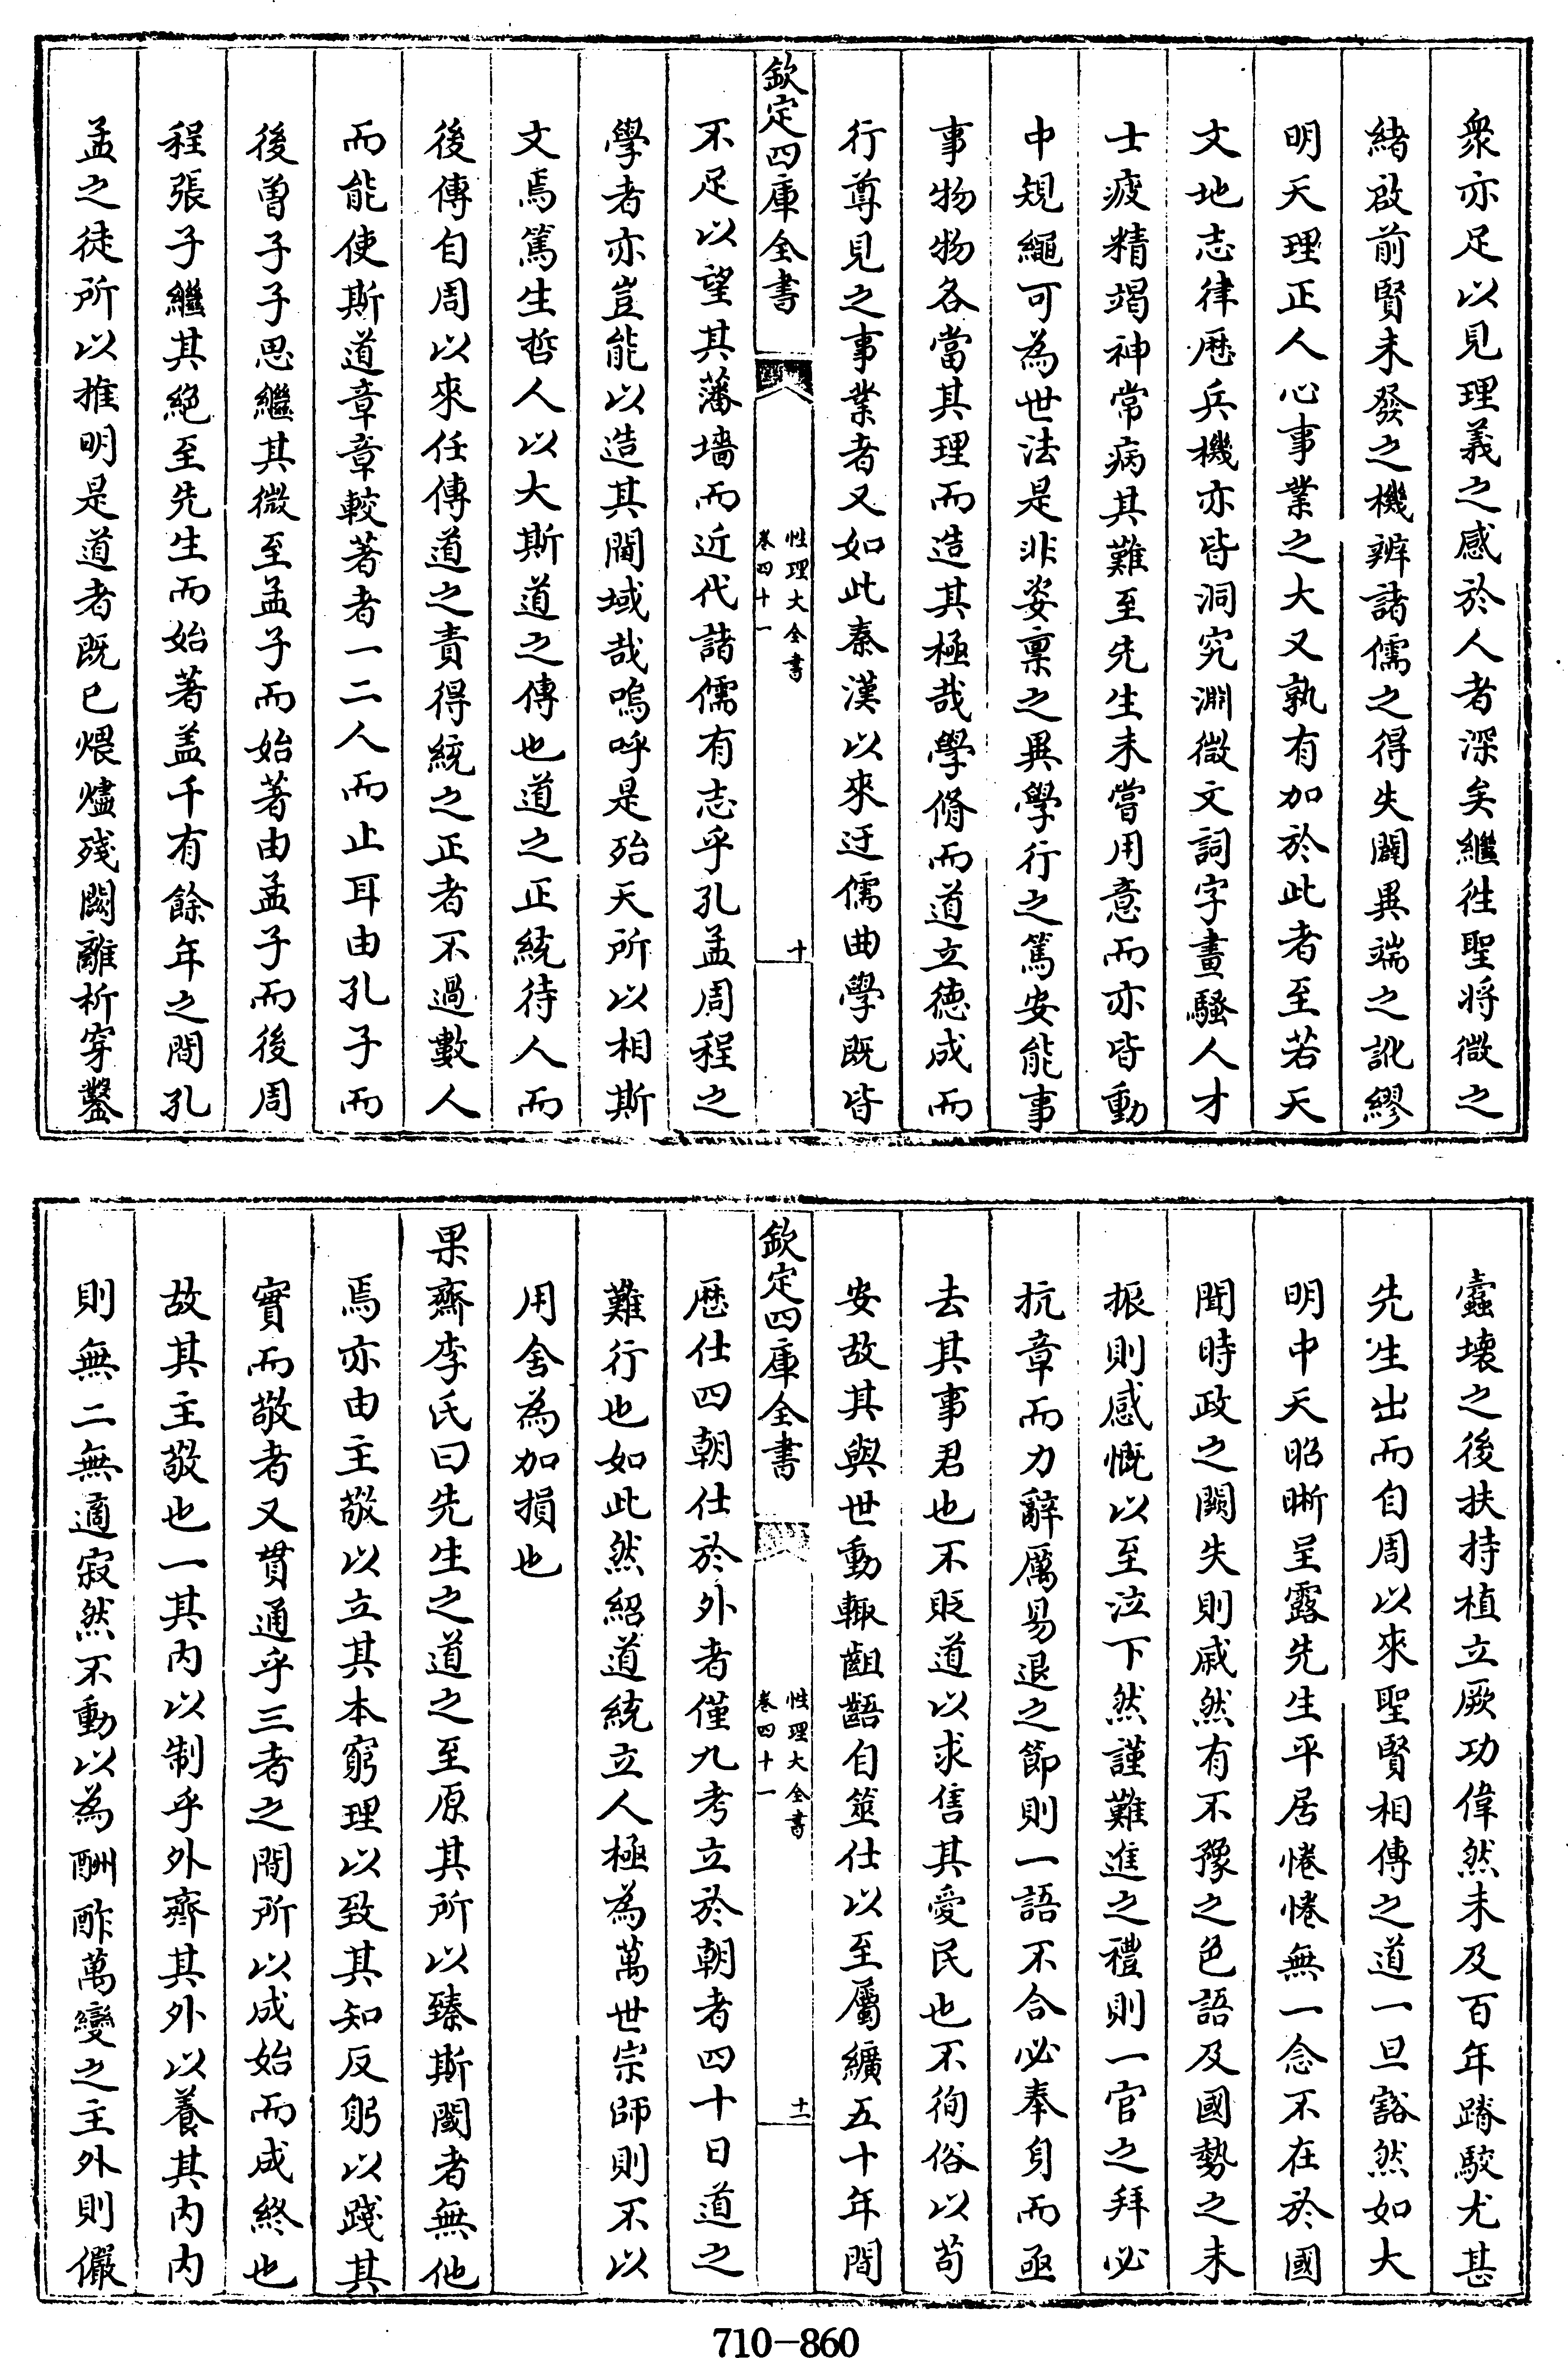 衆亦足以見理義之感於人者深矣繼徃聖將微之
緒啟前賢未發之機辨諸儒之得失闢異端之訛繆
明天理正人心事業之大又孰有加於此者至若天
文地志律厯兵機亦皆洞究淵微文詞字畫騷人才
士疲精竭神常病其難至先生未嘗用意而亦皆動
中規繩可為世法是非姿禀之異學行之篤安能事
事物物各當其理而造其極哉學脩而道立德成而
行尊見之事業者又如此秦漢以來迂儒曲學既皆
欽定四庫全書
性理大全書
卷四十一
十
不足以望其藩墻而近代諸儒有志乎孔孟周程之
學者亦豈能以造其閫域哉嗚呼是殆天所以相斯
文焉篤生哲人以大斯道之傳也道之正統待人而
後傳自周以來任傳道之責得統之正者不過數人
而能使斯道章章較著者一二人而止耳由孔子而
後曽子子思繼其微至孟子而始著由孟子而後周
程張子繼其絕至先生而始著盖千有餘年之間孔
孟之徒所以推明是道者既已煨燼殘闕離析穿鑿
蠧壊之後扶持植立厥功偉然未及百年踳駮尤甚
先生出而自周以來聖賢相傳之道一旦豁然如大
明中天昭晰呈露先生平居惓惓無一念不在於國
聞時政之闕失則戚然有不豫之色語及國勢之未
振則感慨以至泣下然謹難進之禮則一官之拜必
抗章而力辭厲易退之節則一語不合必奉身而亟
去其事君也不貶道以求售其愛民也不徇俗以苟
安故其與世動輙齟齬自筮仕以至屬纊五十年間
欽定四庫全書
性理大全書
卷四十一
十一
厯仕四朝仕於外者僅九考立於朝者四十日道之
難行也如此然紹道統立人極為萬世宗師則不以
用舍為加損也
果齋李氏曰先生之道之至原其所以臻斯閾者無他
焉亦由主敬以立其本窮理以致其知反躬以踐其
實而敬者又貫通乎三者之間所以成始而成終也
故其主敬也一其内以制乎外齊其外以養其内内
則無二無適寂然不動以為酬酢萬變之主外則儼
710-860